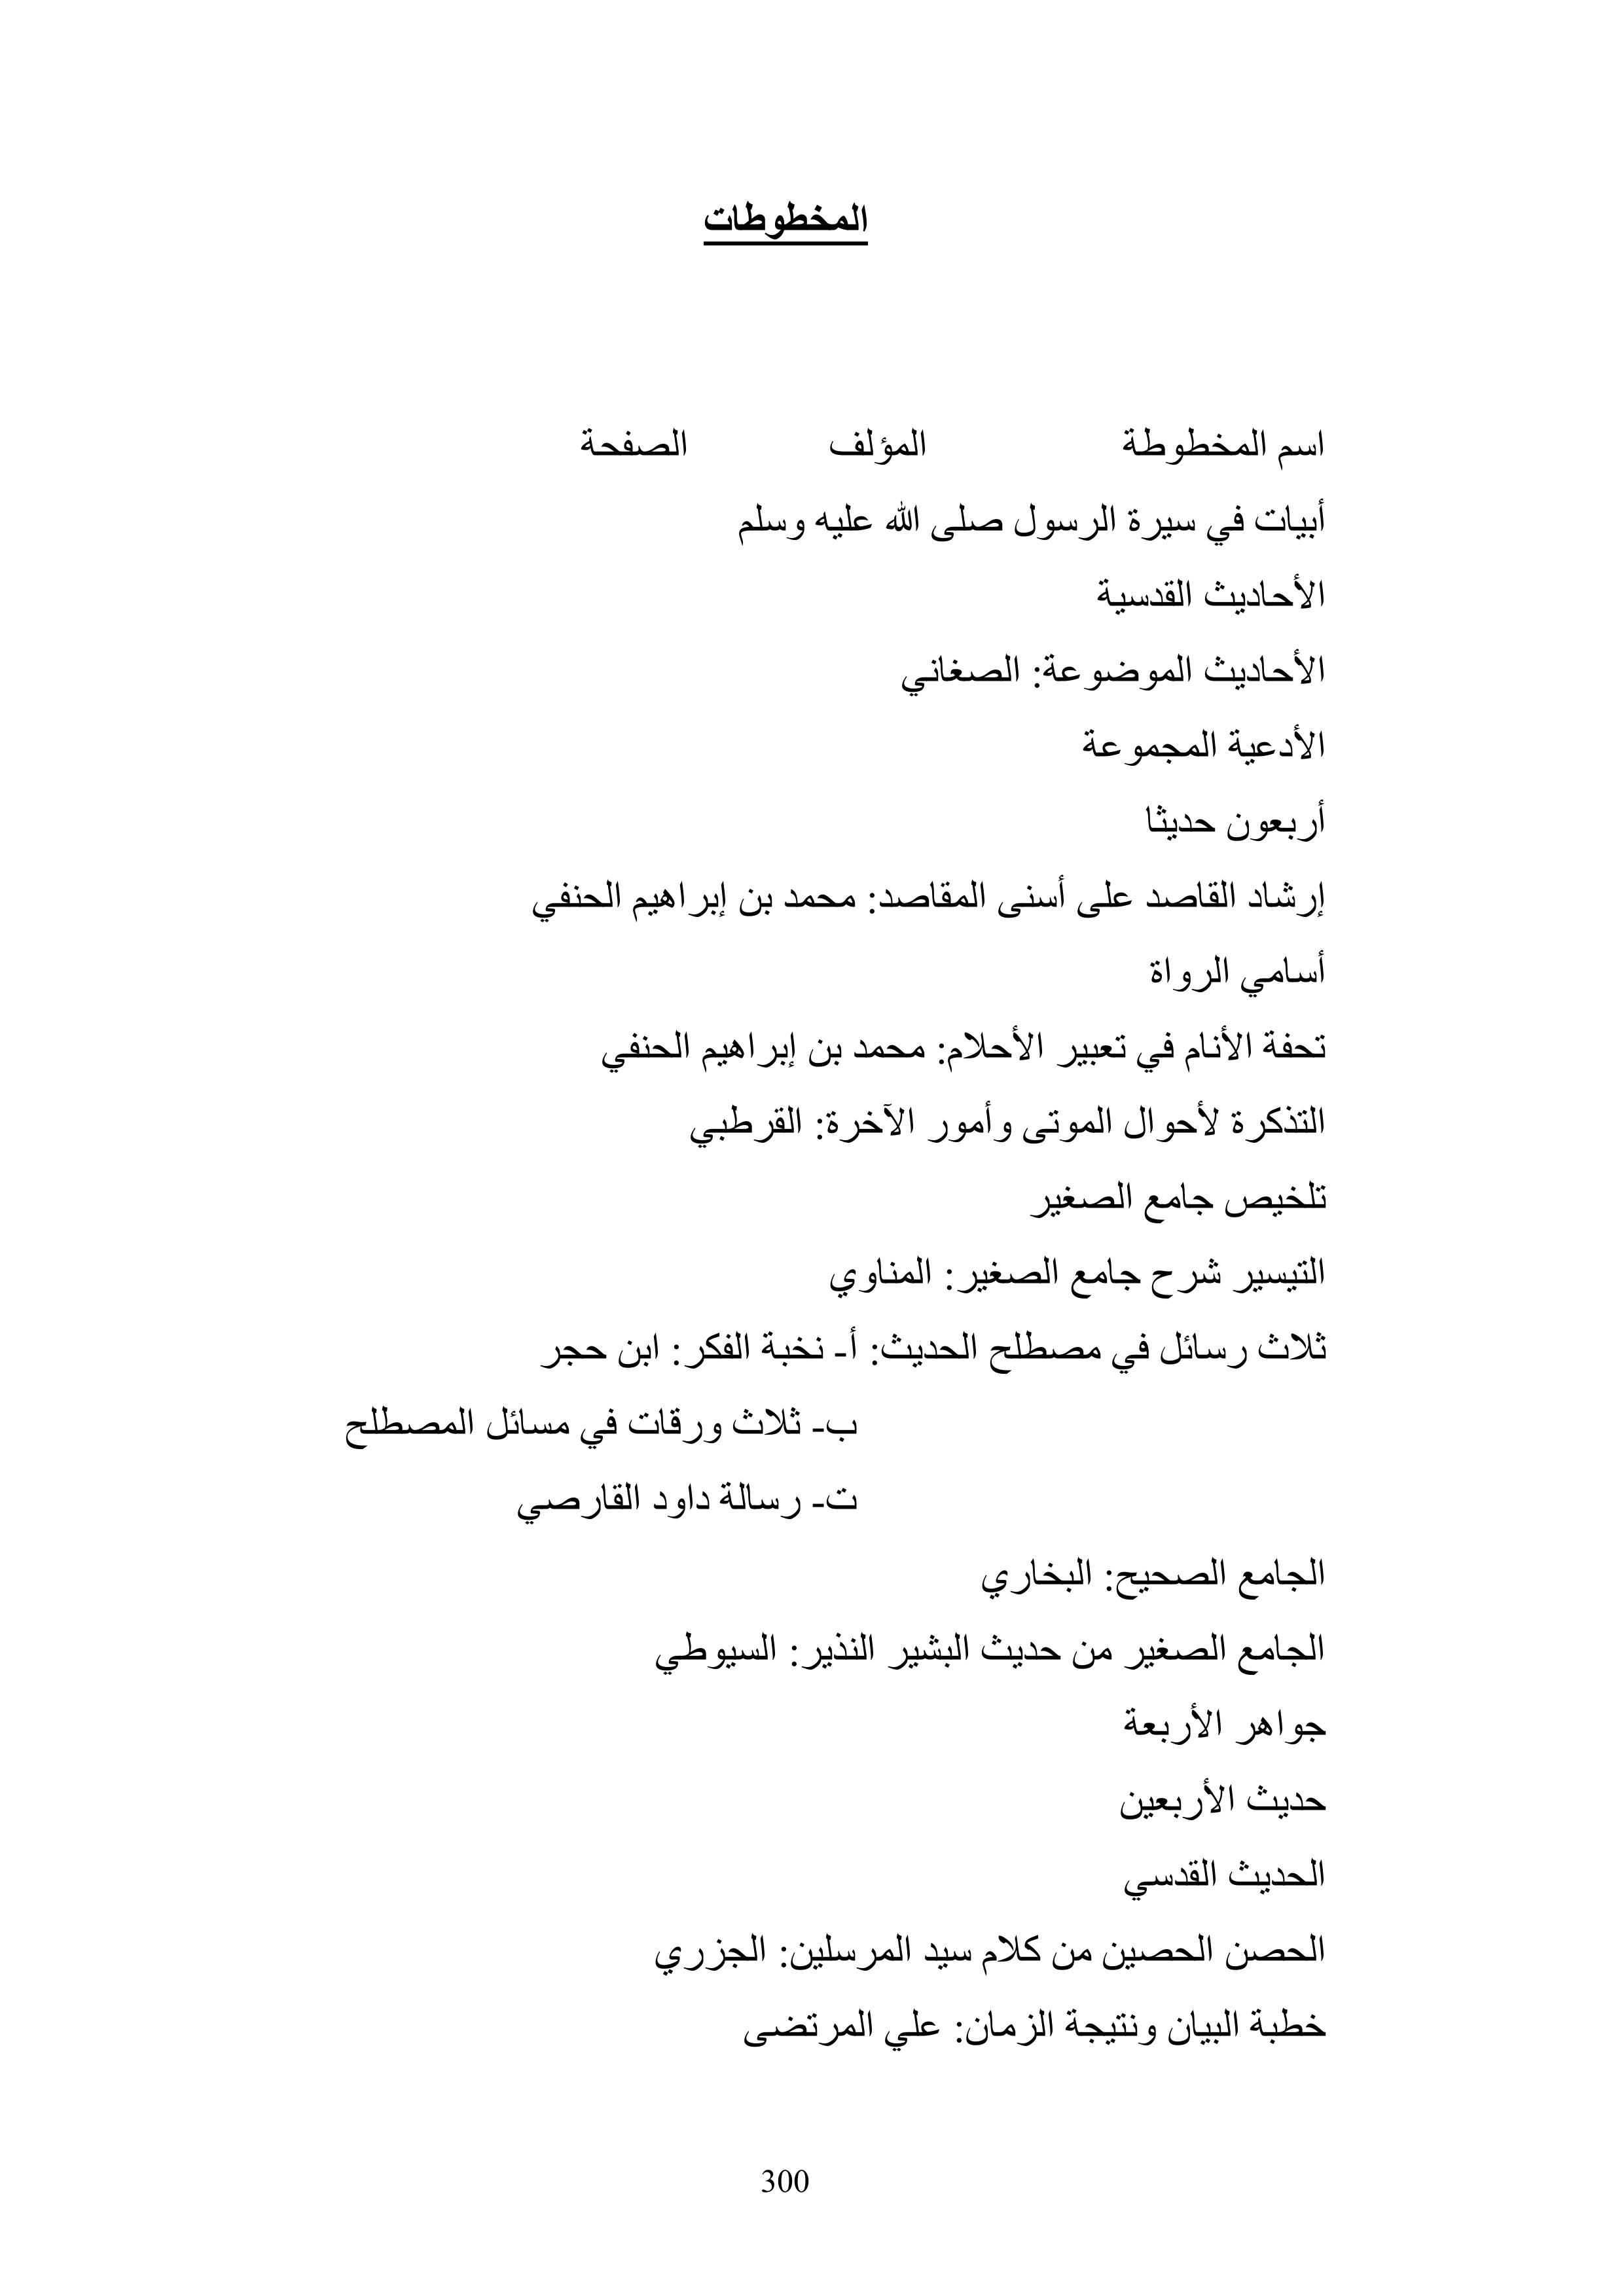 المخطوطات
اسم المخطوطة المؤلف الصفحة
أبيات في سيرة الرسول صلى الله عليه وسلم
الأحاديث القدسية
الأحاديث الموضوعة: الصغاني
الأدعية المجموعة
أربعون حديثا
إرشاد القاصد على أسنى المقاصد: محمد بن إبراهيم الحنفي
أسامي الرواة
تحفة الأنام في تعبير الأحلام: محمد بن إبراهيم الحنفي
التذكرة لأحوال الموتى وأمور الآخرة: القرطبي
تلخيص جامع الصغير
التيسير شرح جامع الصغير: المناوي
ثلاث رسائل في مصطلح الحديث: أ- نخبة الفكر: ابن حجر
ب- ثلاث ورقات في مسائل المصطلح
ت- رسالة داود القارصي
الجامع الصحيح: البخاري
الجامع الصغير من حديث البشير النذير: السيوطي
جواهر الأربعة
حديث الأربعين
الحديث القدسي
الحصن الحصين من كلام سيد المرسلين: الجزري
خطبة البيان ونتيجة الزمان: علي المرتضى
300